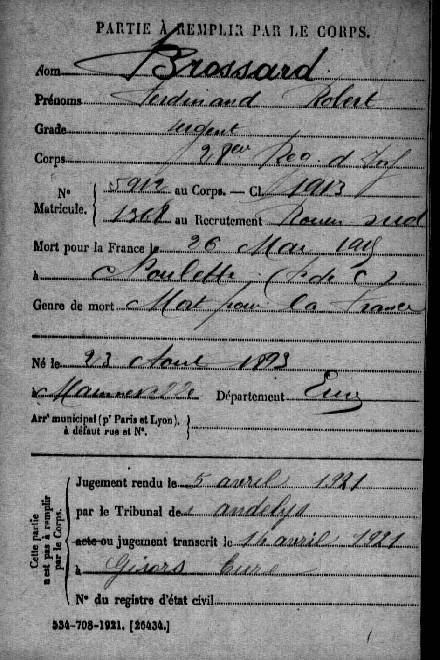 PARTIE À REMPLIR PAR LE CORPS.
Nom Brossard
Prénoms Ferdinand Robert
Grade sergent
Corps 28em Reg. d Inf
N° Matricule. 5912 au Corps. — Cl. 1913
1368 au Recrutement Rouen sud
Mort pour la France le 26 Mai 1915
à Noulette (P de C)
Genre de mort Mort pour la France
Né le 23 Aout 1893
à Département Eure
Arrt municipal (pr Paris et Lyon),
à défaut rue et N°.
Cette partie n'est pas à remplir par le Corps.
Jugement rendu le 5 avril 1921
par le Tribunal des andelys
acte ou jugement transcrit le 14 avril 1921
à Gisors Eure
N° du registre d'état civil
534-708-1921. [26434.]